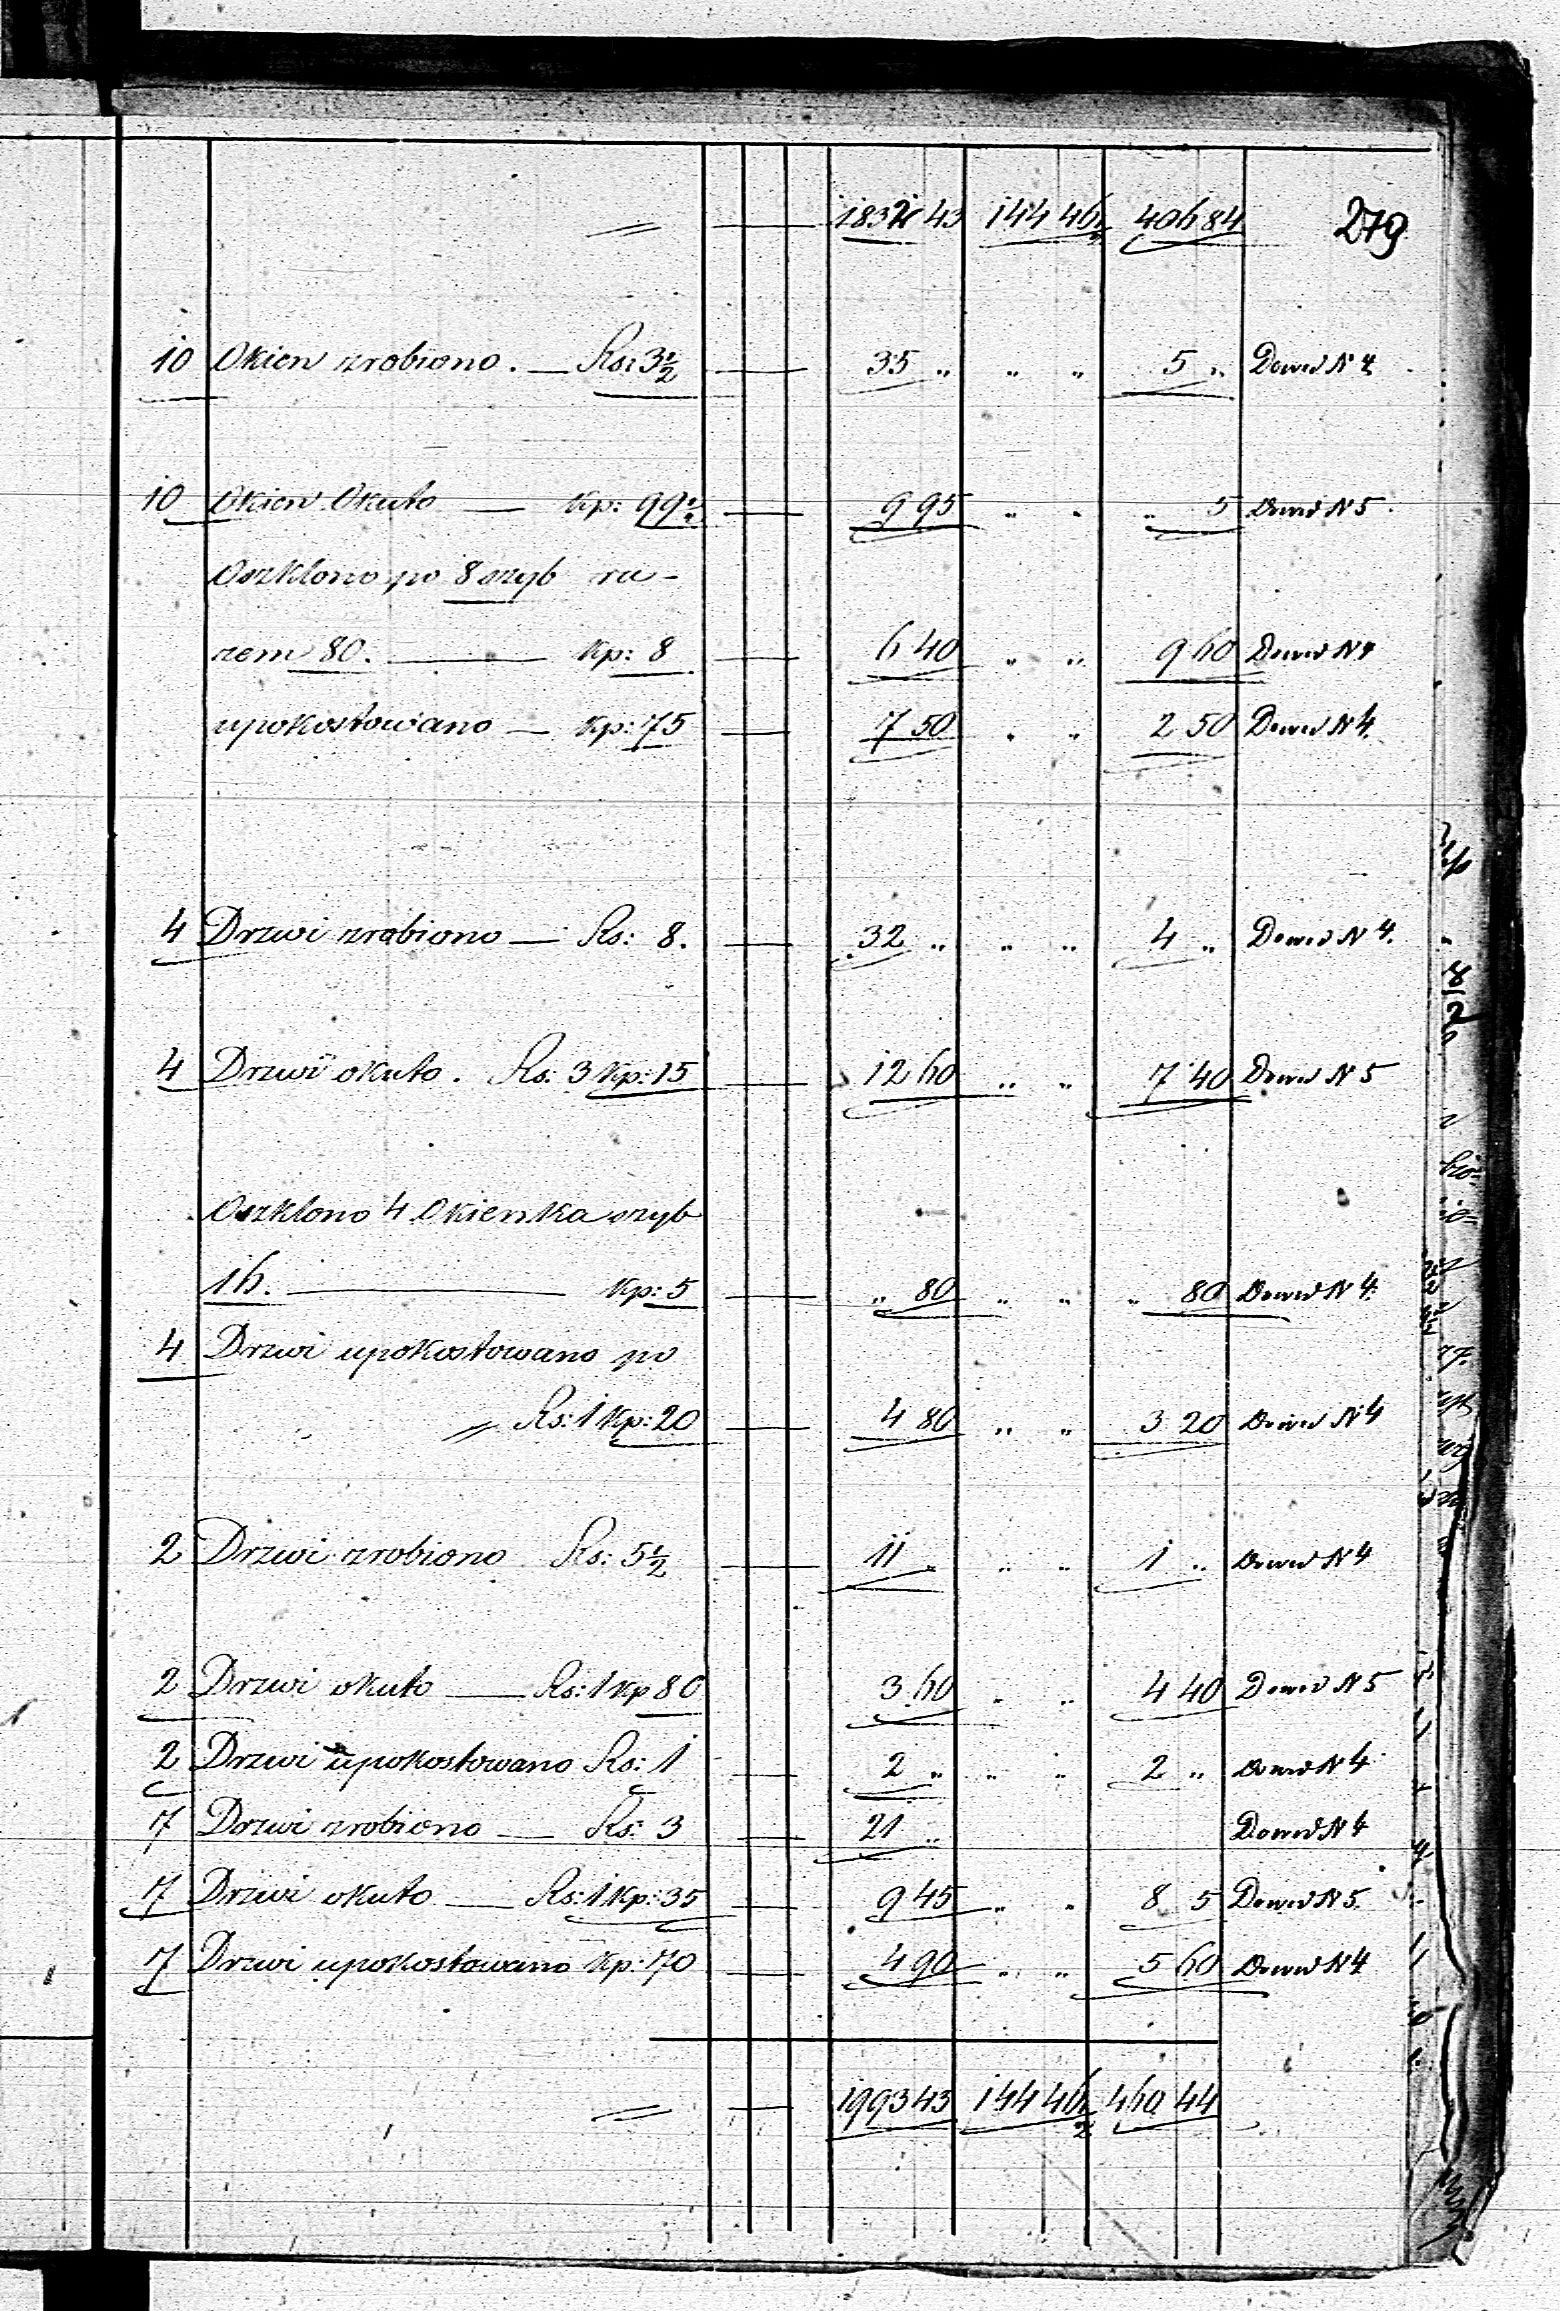 1832 43 144 46½ 406 84 279
10 Okien zrobiono. — Rs: 3½ — 35 " " " 5 " Dowod N 4
10 Okien Okuto — Kp: 99½ — 9 95 " " " 5 Dowod N 5.
Oszklono po 8 szyb ra-
zem 80. — Kp: 8 — 6 40 " " 9 60 Dowod N 4
upokostowano — Kp: 75 — 7 50 " " 2 50 Dowod N 4.
4 Drzwi zrobiono — Rs: 8. — 32 " " " 4 " Dowod N 4.
4 Drzwi okuto. Rs: 3 Kp: 15 — 12 60 " " 7 40 Dowod N 5
Oszklono 4 Okienka szyb
16. — Kp: 5 — " 80 " " " 80 Dowod N 4.
4 Drzwi upokostowano po
" Rs: 1 Kp: 20 — 4 80 " " 3 20 Dowod N 4
2 Drzwi zrobiono Rs: 5½ — 11 " " " 1 " Dowod N 4
2 Drzwi okuto — Rs: 1 Kp 80 3 60 " " 4 40 Dowod N 5
2 Drzwi upokostowano Rs: 1 — 2 " " " 2 " Dowod N 4
7 Drzwi zrobiono — Rs: 3 — 21 " Dowod N 4
7 Drzwi okuto — Rs: 1 Kp: 35 — 9 45 " " 8 5 Dowod N 5.
7 Drzwi upokostowano Kp: 70 — 4 90 " " 5 60 Dowod N 4
" — 1993 43 144 46½ 460 44